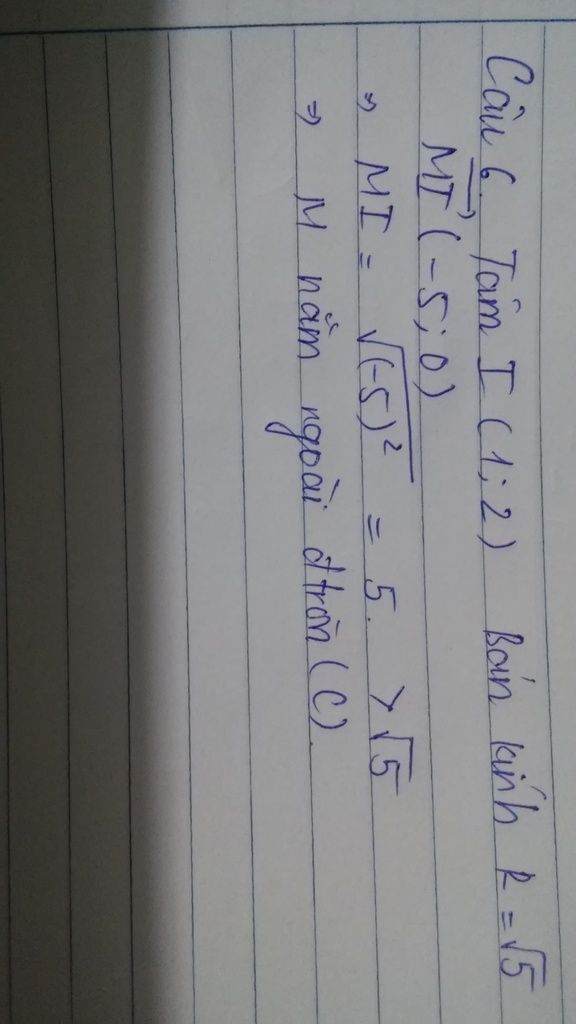 Câu 6. Tâm I (1; 2) Bán kính R = √5
MI⃗ (-5; 0)
⇒ MI = √(-5)² = 5. > √5
⇒ M nằm ngoài đtròn (C).